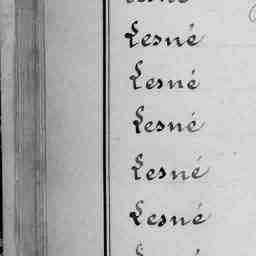 Lesné
Lesné
Lesné
Lesné
Lesné